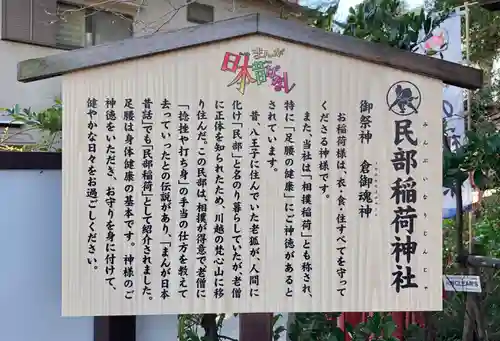 民部稲荷神社
みんぶいなりじんじゃ
御祭神　倉御魂神
お稲荷様は、衣・食・住すべてを守って
くださる神様です。
また、当社は「相撲稲荷」とも称され、
特に「足腰の健康」にご神徳があると
まんが
日本昔ばなし
昔、八王子に住んでいた老狐が、人間に
化け「民部」と名のり暮らしていたが、老僧
に正体を知られたため、川越の梵心山に移
り住んだ。この民部は、相撲が得意で老僧に
「捻挫や打ち身」の手当の仕方を教えて
去っていったとの伝説があり、「まんが日本
昔話」でも「民部稲荷」として紹介されました。
足腰は身体の健康の基本です。神様のご
神徳をいただき、お守りを身に付けて、
健やかな日々をお過ごしください。